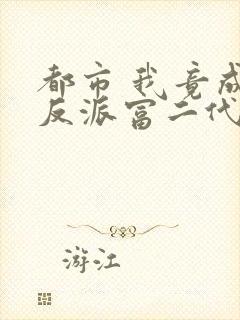 都市我竟成
反派富二代
游江